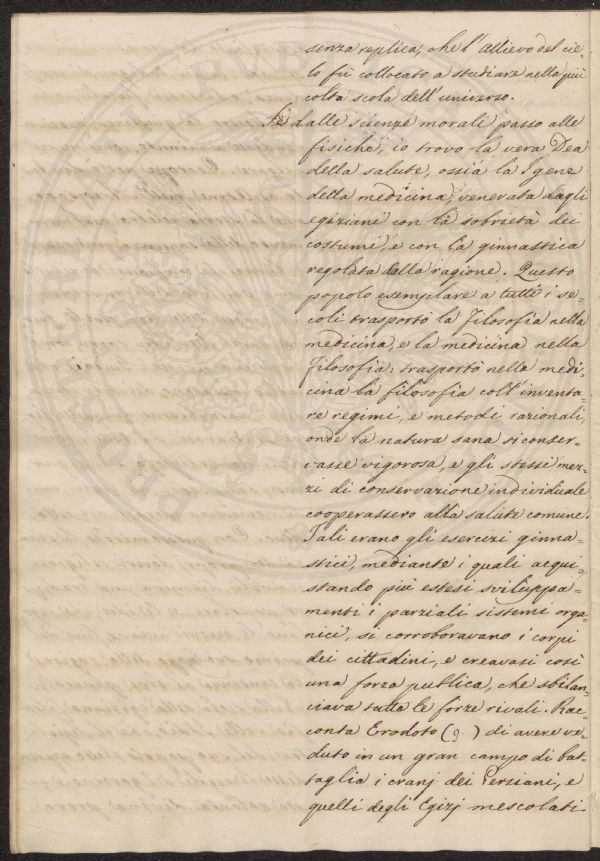 senza replica, che l'allievo del cie-
lo fù collocato a studiare nella più
colta scola dell'universo.
Se dalle scienze morali passo alle
fisiche, io trovo la vera Dea
della salute, ossia la Igene
della medicina, venerata dagli
egiziani con la sobrietà dei
costumi, e con la ginnastica
regolata dalla ragione. Questo
popolo esemplare a tutti i se-
coli trasportò la Filosofia nella
medicina, e la medicina nella
Filosofia: trasportò nella medi-
cina la filosofia coll'inventa-
re regimi, e metodi razionali,
onde la natura sana si conser-
vasse vigorosa, e gli stessi mez-
zi di conservazione individuale
cooperassero alla salute comune.
Tali erano gli esercizi ginna-
stici, mediante i quali acqui-
stando più estesi sviluppa-
menti i parziali sistemi orga-
nici, si corroboravano i corpi
dei cittadini, e creavasi così
una forza publica, che sbilan-
ciava tutte le forze rivali. Rac-
conta Erodoto (9.) di avere ve-
duto in un gran campo di bat-
taglia i cranj dei Persiani, e
quelli degli Egizj mescolati